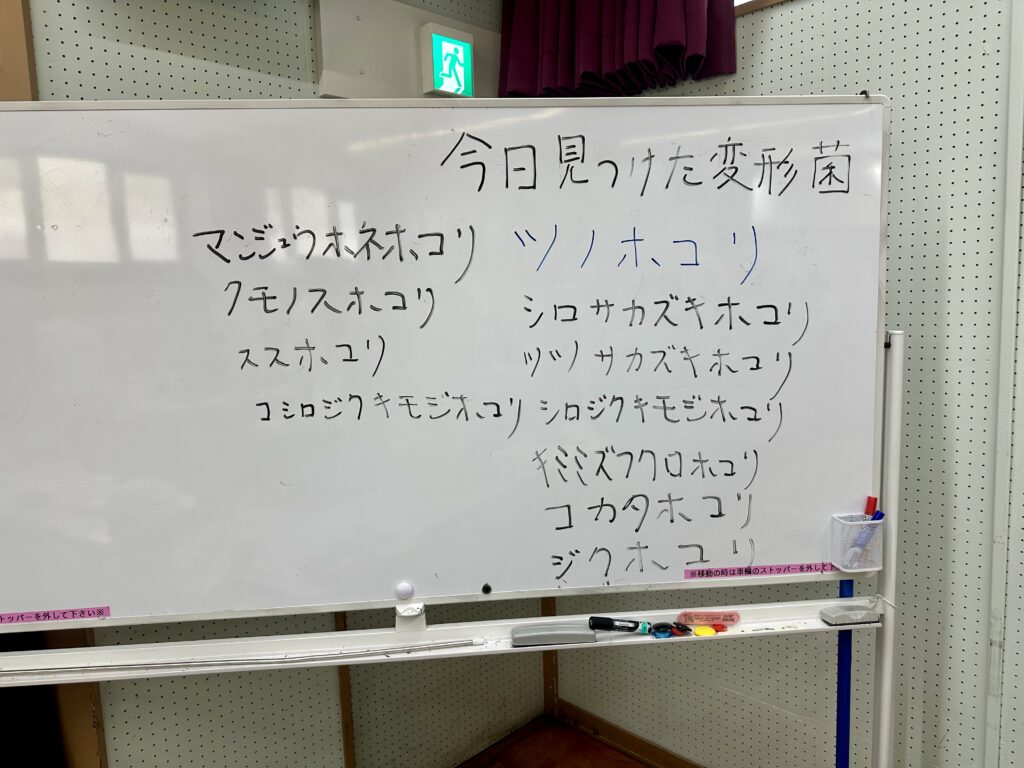 今日見つけた変形菌
ツノホコリ
シロサカズキホコリ
ツツサカズキホコリ
シロジクキモジホコリ
キミミズフクロホコリ
コカタホコリ
ジクホコリ
マンジュウホネホコリ
クモノスホコリ
ススホコリ
コシロジクキモジホコリ
※移動の時は車輪のストッパーを外して下
トッパーを外して下さい※